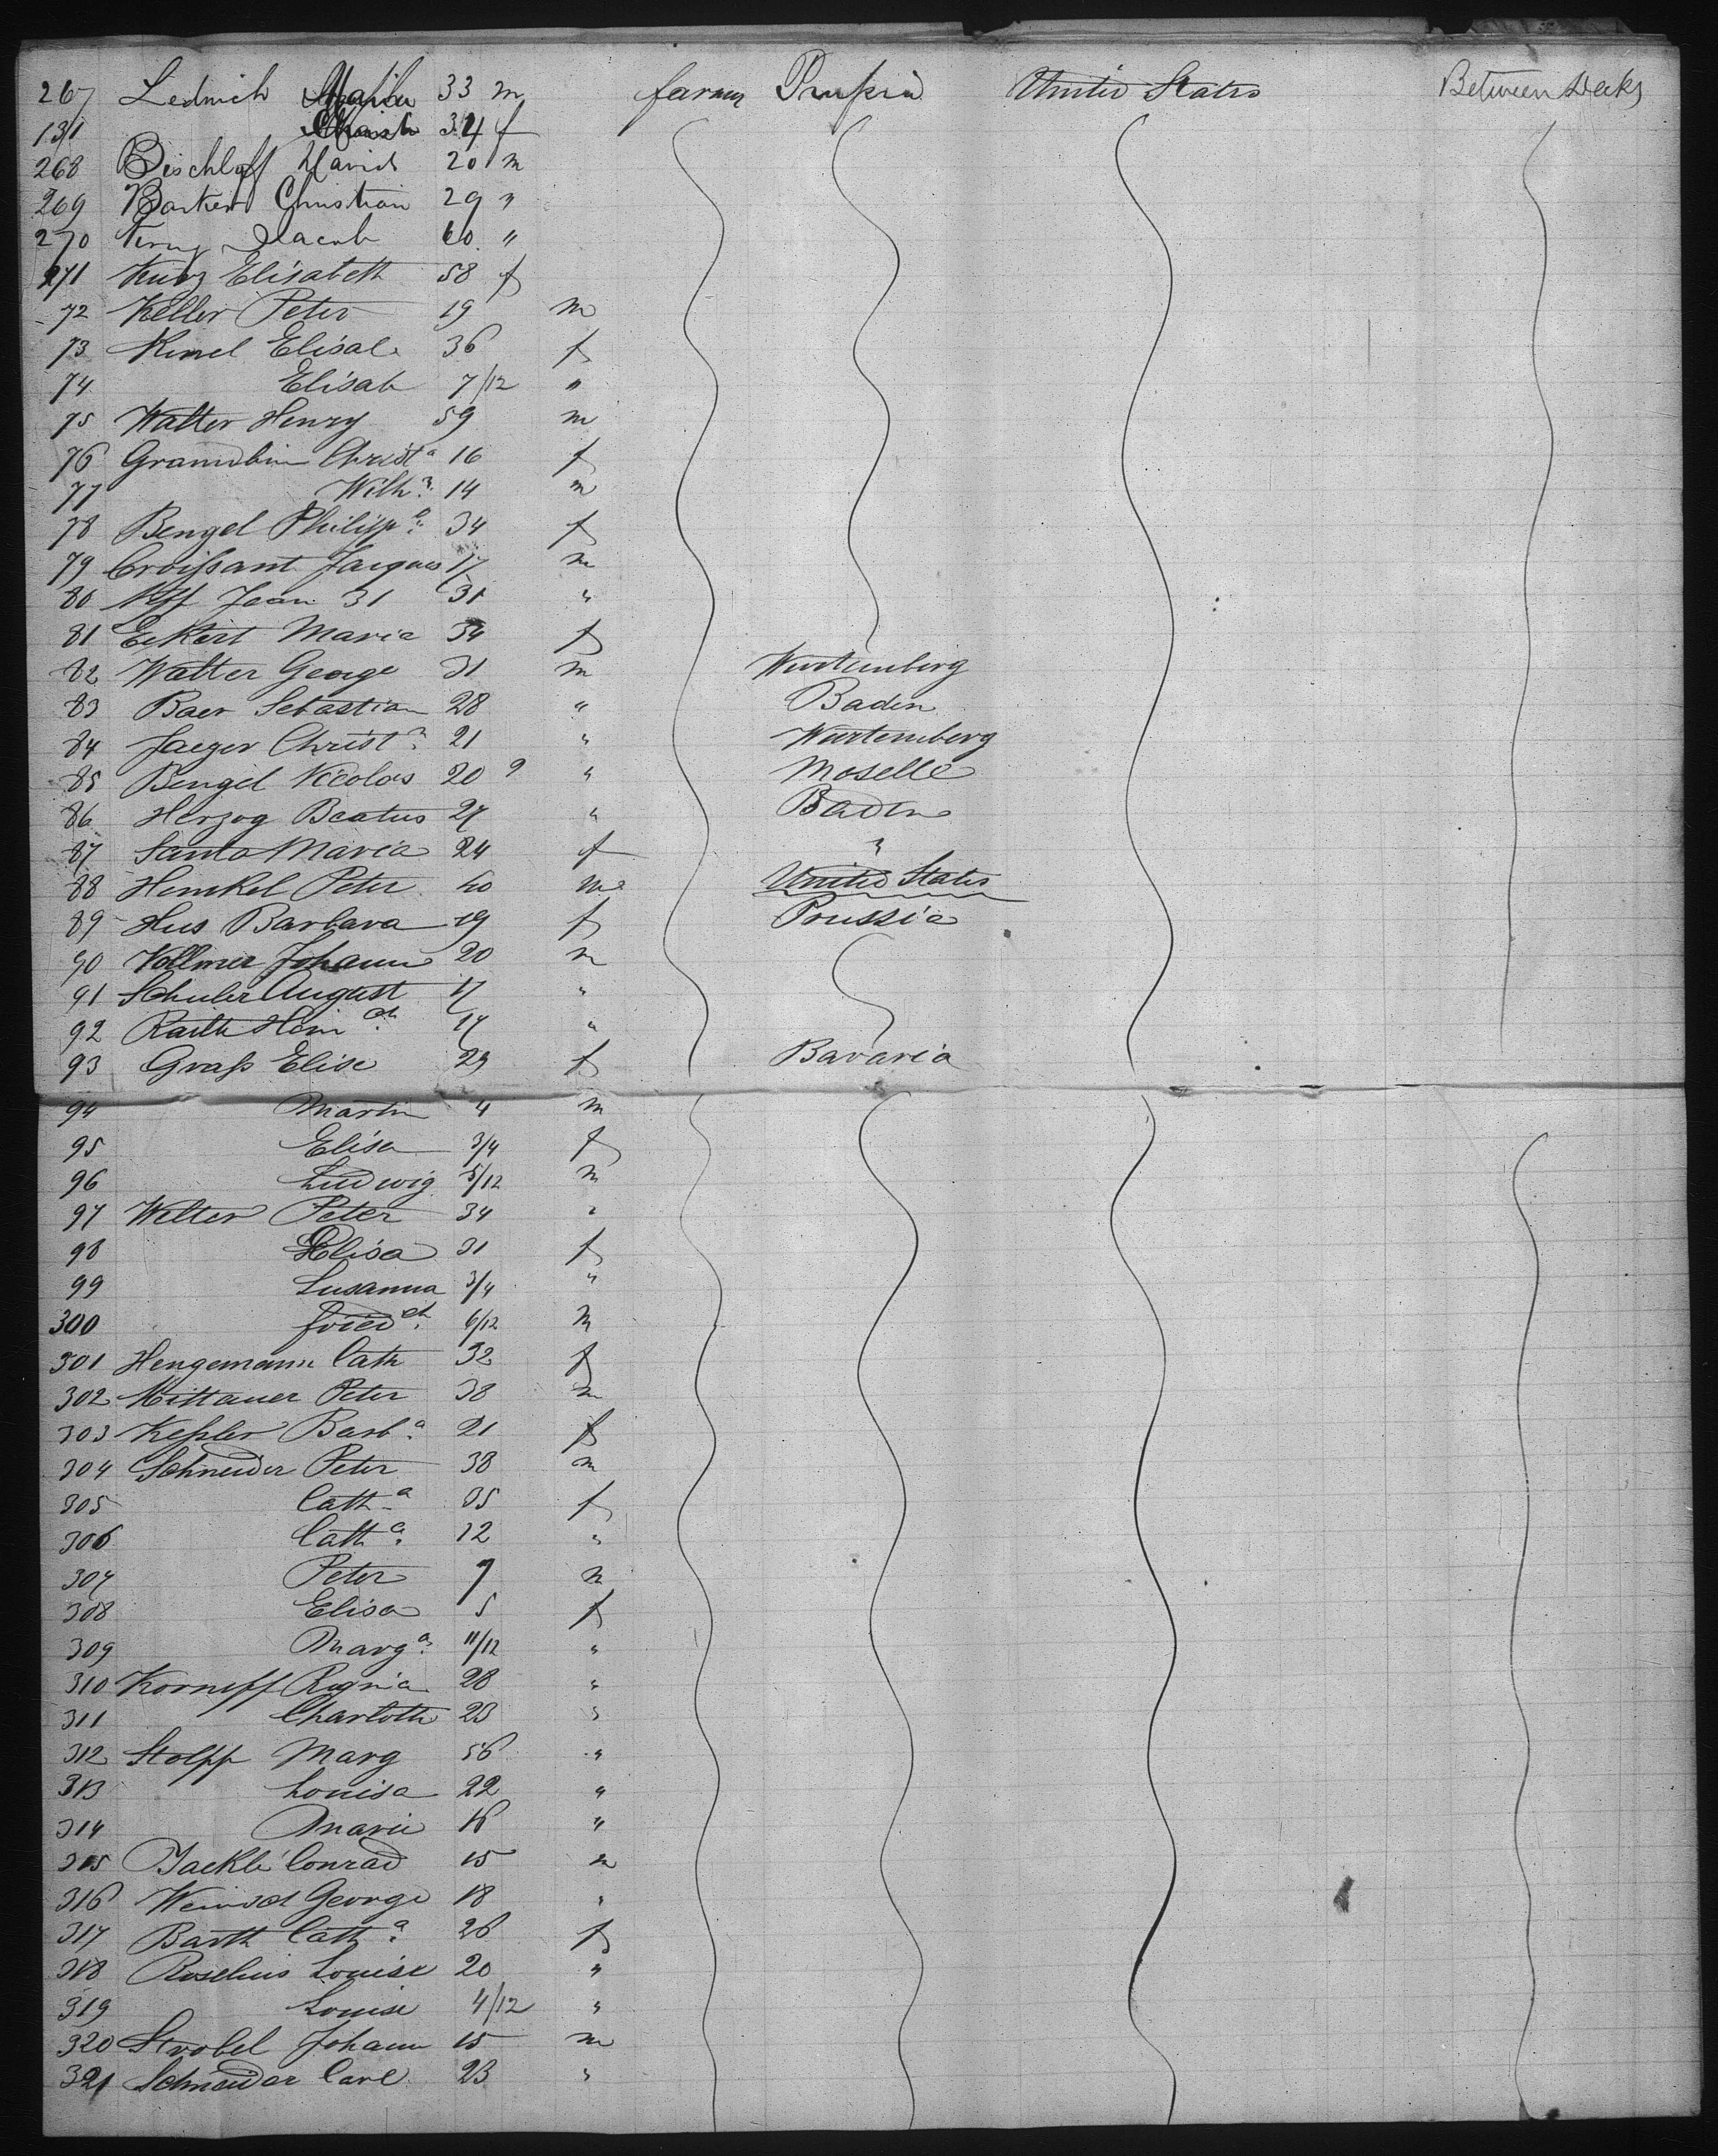 267 Lednich 33 m farmer Prußia United States Between Decks
131 34 f
268 Bischloff David 20 m
269 Barker Christian 29 "
270 Jacob 60 "
271 Kurz Elisabeth 58 f
72 Keller Peter 19 m
73 Kimel Elisab. 36 f
74 Elisab 7/12 "
75 Walter Henry 59 m
76 Christa 16 f
77 Wilhm 14 m
78 Bengel Philippe 34 f
79 Croißant Jacques 17 m
80 Jean 31 31 "
81 Eckert Maria 34 f
82 Walter George 31 m Wurtemberg
83 Baer Sebastian 28 " Baden
84 Jaeger Christn 21 " Wurtemberg
85 Bengel Nicolas 20 9 " Moselle
86 Herzog Beatus 27 " Baden
87 Santo Maria 24 f "
88 Henkel Peter 40 m United States
89 Hus Barbara 19 f Prussia
90 Vollmer Johann 20 m
91 Schuler August 17 "
92 Raith Heinch 17 "
93 Graß Elise 29 f Bavaria
94 Martin 4 m
95 Elisa 3/4 f
96 Ludwig 5/12 m
97 Welter Peter 34 "
98 Elisa 31 f
99 Susanna 3/4 "
300 Friedch 6/12 m
301 Hengemann Cath 32 f
302 Mittauer Peter 38 m
303 Keßler Barba 21 f
304 Schneider Peter 38 m
305 Catha 35 f
306 Catha 12 "
307 Peter 7 m
308 Elisa 5 f
309 Marga 11/12 "
310 Korneff Regina 28 "
311 Charlotte 23 "
312 Stolpp Marg 56 "
313 Louisa 22 "
314 Marie 18 "
315 Jackle Conrad 15 m
316 George 18 "
317 Barth Catha 26 f
318 Roselius Louise 20 "
319 Louise 4/12 "
320 Strobel Johann 15 m
321 Schneider Carl 23 "